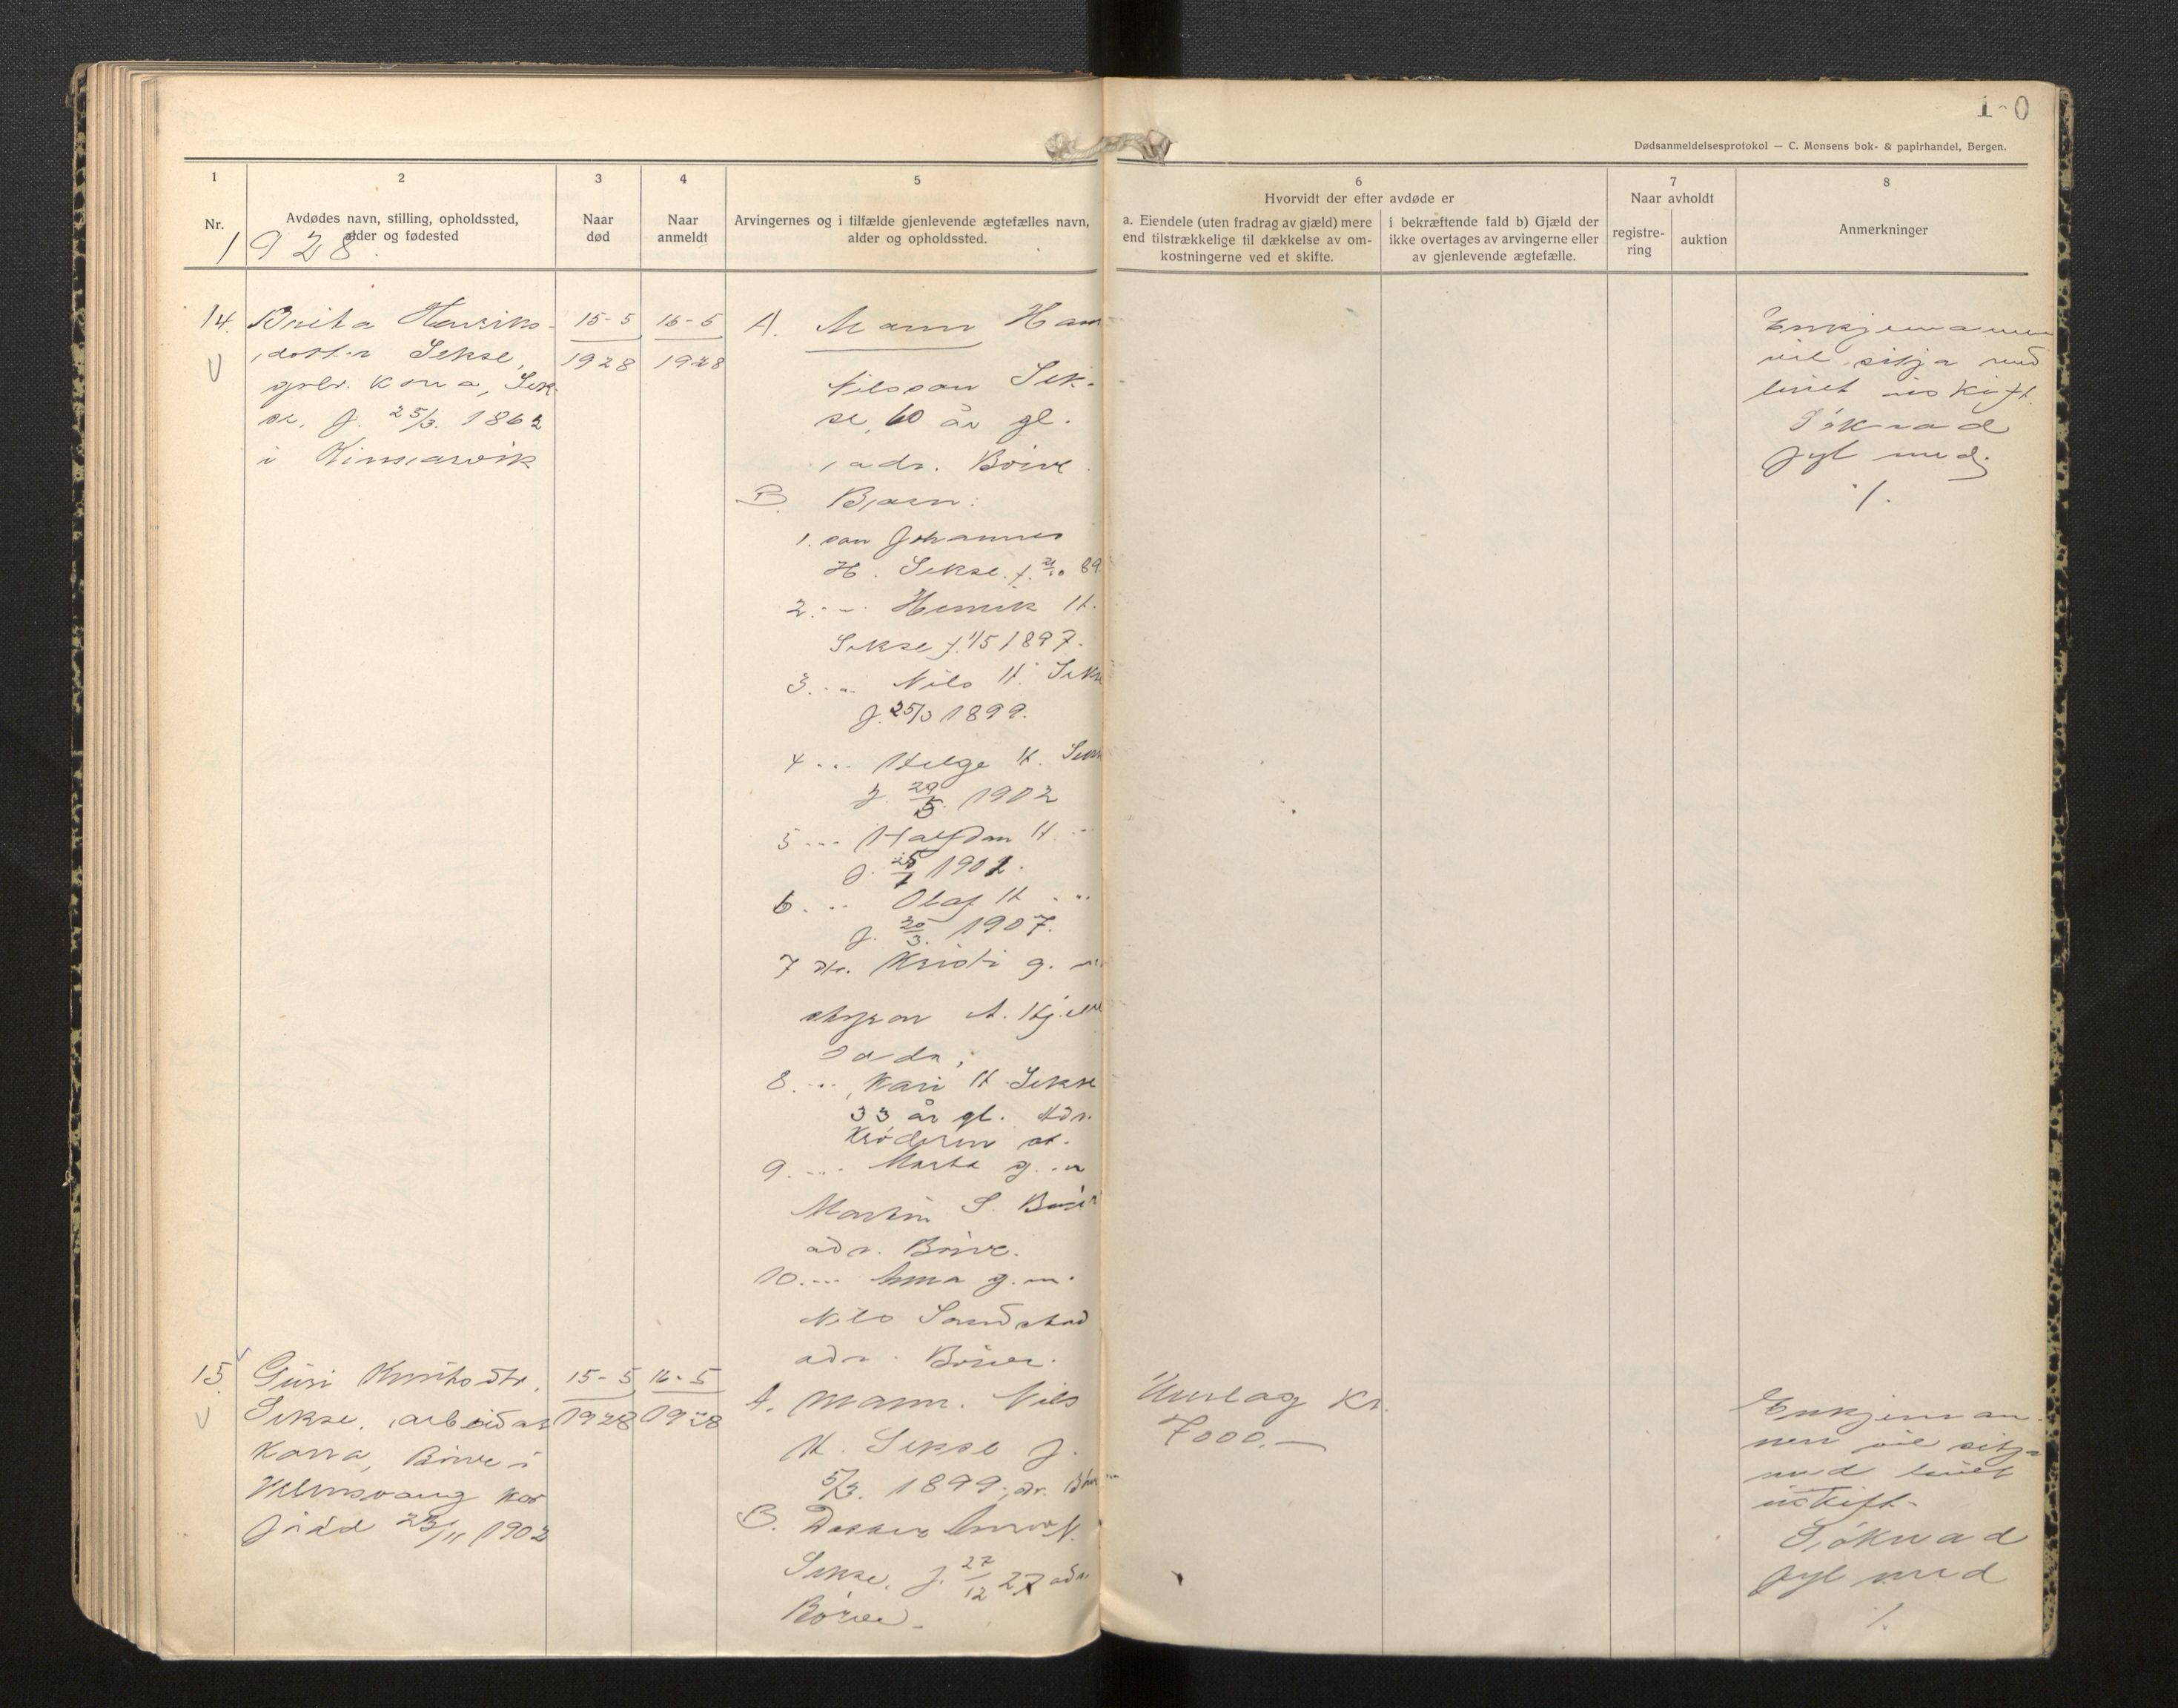 1-0
Dødsanmeldelsesprotokol — C. Monsens bok- & papirhandel, Bergen.
1
2
3
4
5
6
7
8
Nr.
Avdødes navn, stilling, opholdssted,
alder og fødested
Naar
død
Naar
anmeldt
Arvingernes og i tilfælde gjenlevende ægtefælles navn,
alder og opholdssted.
Hvorvidt der efter avdøde er
a. Eiendele (uten fradrag av gjæld) mere
end tilstrækkelige til dækkelse av om-
kostningerne ved et skifte.
i bekræftende fald b) Gjæld der
ikke overtages av arvingerne eller
av gjenlevende ægtefælle.
Naar avholdt
registre-
ring
auktion
Anmerkninger
1928.
14.
Brita Henriks-
dotter Sekse,
gbr. kona, Sek-
se, f. 25/3. 1862
i Kinsarvik
15-5
1928
16-5
1928
A. Mann
Nilsson Sek-
se, 60 år gl.
adr. Börve.
B. Born:
1. son Johannes
H. Sekse. f. 89
2. -"- Henrik H.
Sekse f. 1897.
3. -"- Nils H. Sekse
f. 25/3 1899.
4 -"- Helge H.
f. 29/5. 1902
5 -"- Halfdan H. -"-
f.
6. -"- Olaf H. -"-
f. 1907.
7 dtr. Kristi g. m
A.
adr.
8. -"- Kari H. Sekse
33 år gl. Adr.
Krøderen st.
9. -"- Marta g. m
Martin S.
adr. Börve.
10. -"- Anna g. m.
Nils
adr. Börve.
Enkjemannen
vil sitja med
buet uskift.
Søknad
fyl med.
./.
15.
Guri Knutsdtr.
Sekse, arbeidar
kona, Börve i
Ullensvang her
född 1902
15-5
1928
16-5
1928
A. Mann. Nils
H. Sekse f.
1899, adr.
B. Dotter N.
Sekse, f. 27/12 27 adr.
Börve.
Umlag Kr.
7000.—
Enkjeman-
nen vil sitja
med buet
uskift.
Søknad
fyl med
./.